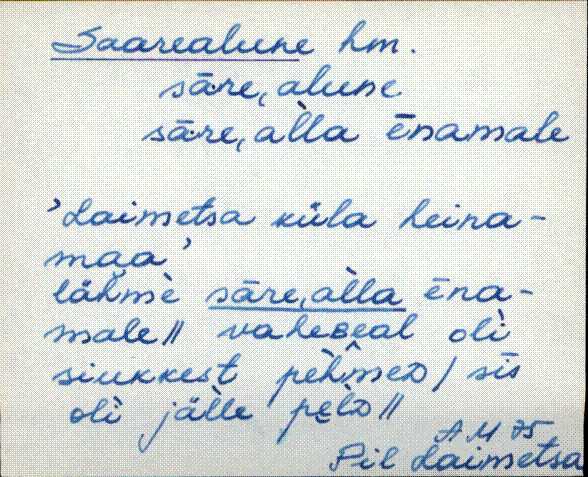 Saarealune hm.
säre, alune
säre, alla ēnamale
'Laimetsa küla heina-
maa'
lähme säre, alla ēna-
male || vaheʙeal oli
siukkest pehmeᴅ / sis
oli jälle pelᴅ ||
A M 75
Pil Laimetsa